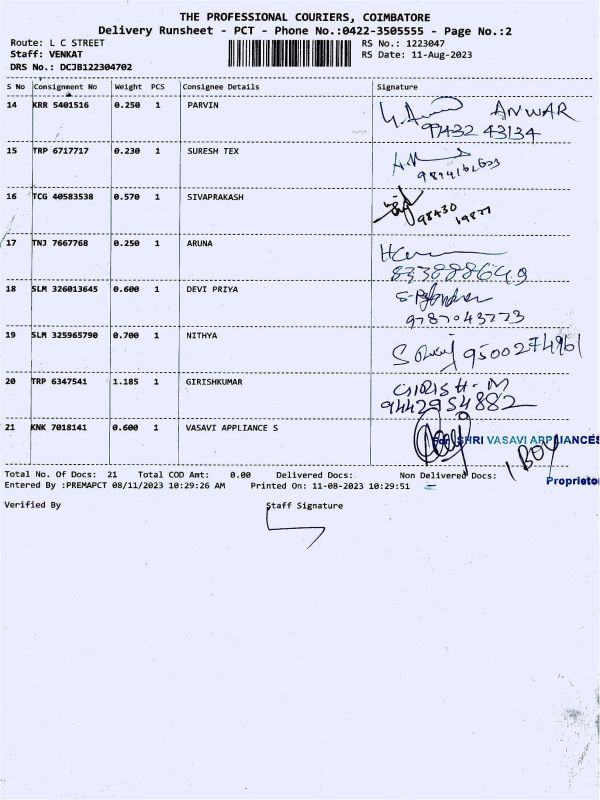 THE PROFESSIONAL COURIERS, COIMBATORE
Delivery Runsheet - PCT - Phone No.:0422-3505555 - Page No.:2
Route: L C STREET RS No.: 1223047
Staff: VENKAT RS Date: 11-Aug-2023
DRS No.: DCJB122304702
S No Consignment No Weight PCS Consignee Details Signature
14 KRR 5401516 0.250 1 PARVIN ANWAR
97432 43134
15 TRP 6717717 0.230 1 SURESH TEX
16 TCG 40583538 0.570 1 SIVAPRAKASH 98430
17 TNJ 7667768 0.250 1 ARUNA
8338888649
18 SLM 326013645 0.600 1 DEVI PRIYA
9787043773
19 SLM 325965790 0.700 1 NITHYA 9500274961
20 TRP 6347541 1.185 1 GIRISHKUMAR GIRISH.M
9442954882
21 KNK 7018141 0.600 1 VASAVI APPLIANCE S For SHRI VASAVI APPLIANCES
1 BOY
Total No. Of Docs: 21 Total COD Amt: 0.00 Delivered Docs: Non Delivered Docs:
Proprietor
Entered By :PREMAPCT 08/11/2023 10:29:26 AM Printed On: 11-08-2023 10:29:51
Verified By Staff Signature